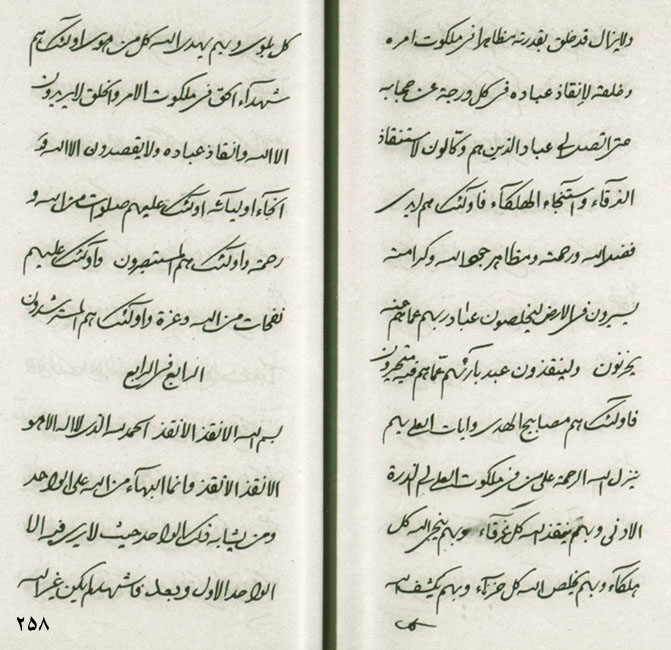 ولايزال قد خلق بقدرته مظاهرا فى ملكوت امره
وخلقه لإنقاذ عباده فى كل درجة عن حجابه
حتى اتصد لى عباد الذين هم وكّالون لاستنقاذ
الغرقاء واستنجاء الهلكاء فاولئك هم ايدى
فضل الله ورحمته ومظاهر جود الله وكرامته
يسيرون فى الارض ليخلصون عباد ربهم عما هم عنه
يحزنون ولينقذون عبد بارئهم عمّا هم فيه متحيرون
فاولئك هم مصابيح الهدى وايات العلى بهم
ينزل الله الرحمة على من فى ملكوت العلى الى الذرة
الادنى وبهم ينقذ الله كل غرقاء وبهم ينجى الله كل
هلكاء وبهم يخلص الله كل حزناء وبهم يكشف الله
كل بلوى وبهم يهدى الله كل من هوى اولئك هم
شهداء الحق فى ملكوت الامر والخلق لايريدون
الا الله وانقاذ عباده ولايقصدون الا الله و
انجاء اوليائه اولئك عليهم صلوات من الله و
رحمة واولئك هم المستبصرون واولئك عليهم
نفحات من الله وعزة واولئك هم المسترشدون
الرابع فى الرابع
بسم الله الانقذ الانقذ الحمد لله الذى لا اله الا هو
الانقذ الانقذ وانما البهاء من الله على الواحد
ومن يشابه ذلك الواحد حيث لايرى فيه الا
الواحد الاول وبعد فاشهد لم يكن غير الله
٢٥٨